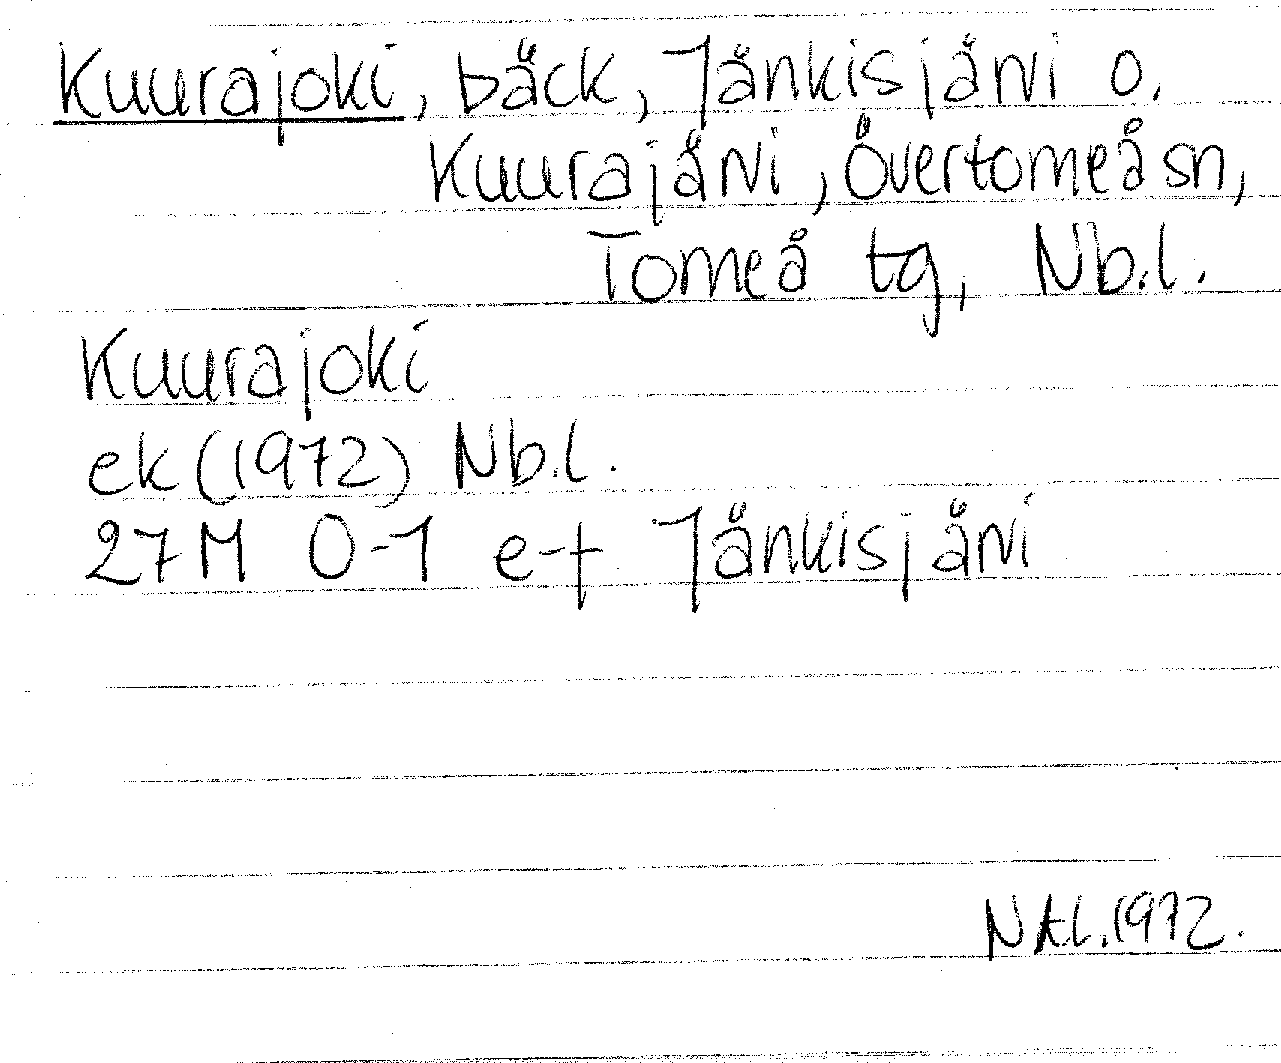 Kuurajoki, bäck, Jänkisjärvi o.
Kuurajärvi, Övertorneå sn,
Torneå tg, Nb.l.
Kuurajoki
ek (1972) Nb.l.
27M 0-1 e-f Jänkisjärvi
NAl. 1972.